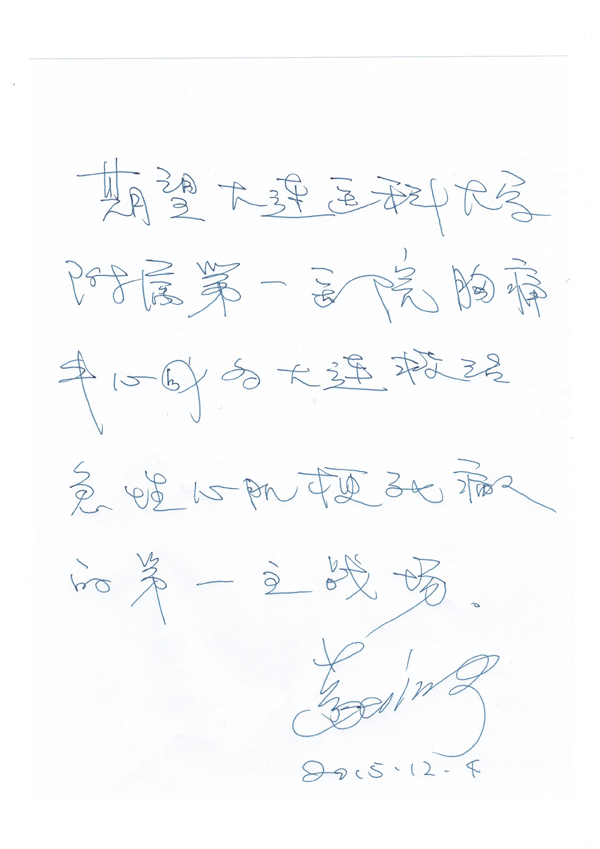 期望大连医科大学
附属第一医院胸痛
中心成为大连救治
急性心肌梗死病人
的第一主战场.
2015.12.4